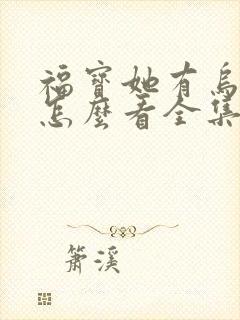 福寶她有烏
怎麼看全集
簫溪